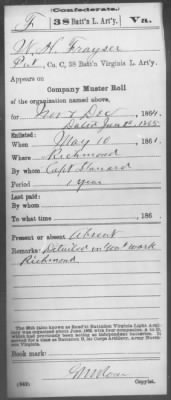 (Confederate.)
F 38 Batt'n L. Art'y. Va.
W. H. Frayser
Pvt, Co. C, 38 Batt'n Virginia L. Art'y.
Appears on
Company Muster Roll
of the organization named above,
for Nov & Dec, 1864.
Dated Jan 1865.
Enlisted:
When May 10, 1861.
Where Richmond
By whom Capt Stanard
Period 1 year
Last paid:
By whom
To what time , 186
Present or absent Absent
Remarks: Detailed in Gov't Work
Richmond
Book mark:
(642) Copyist.